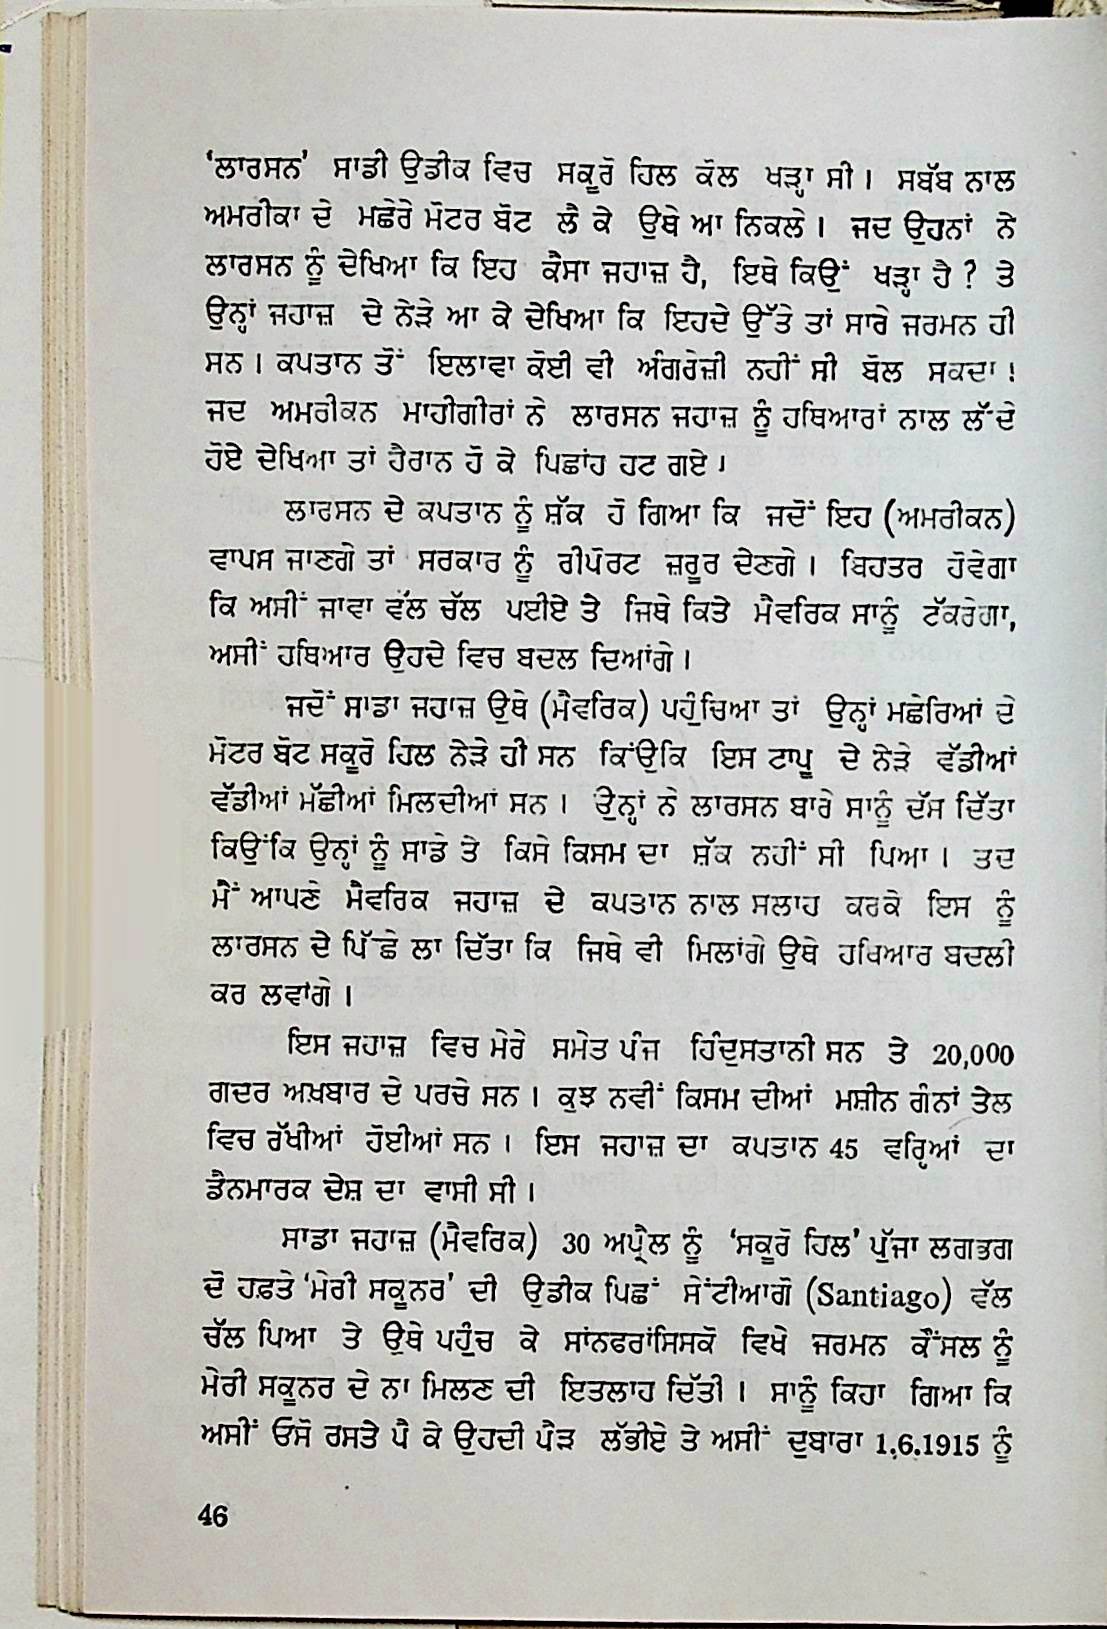 ‘ਲਾਰਸਨ’ ਸਾਡੀ ਉਡੀਕ ਵਿਚ ਸਕੂਰੋ ਹਿਲ ਕੋਲ ਖੜ੍ਹਾ ਸੀ। ਸਬੱਬ ਨਾਲ
ਅਮਰੀਕਾ ਦੇ ਮਛੇਰੇ ਮੋਟਰ ਬੋਟ ਲੈ ਕੇ ਉਥੇ ਆ ਨਿਕਲੇ। ਜਦ ਉਹਨਾਂ ਨੇ
ਲਾਰਸਨ ਨੂੰ ਦੇਖਿਆ ਕਿ ਇਹ ਕੈਸਾ ਜਹਾਜ਼ ਹੈ, ਇਥੇ ਕਿਉਂ ਖੜ੍ਹਾ ਹੈ? ਤੇ
ਉਨ੍ਹਾਂ ਜਹਾਜ਼ ਦੇ ਨੇੜੇ ਆ ਕੇ ਦੇਖਿਆ ਕਿ ਇਹਦੇ ਉੱਤੇ ਤਾਂ ਸਾਰੇ ਜਰਮਨ ਹੀ
ਸਨ। ਕਪਤਾਨ ਤੋਂ ਇਲਾਵਾ ਕੋਈ ਵੀ ਅੰਗਰੇਜ਼ੀ ਨਹੀਂ ਸੀ ਬੋਲ ਸਕਦਾ!
ਜਦ ਅਮਰੀਕਨ ਮਾਹੀਗੀਰਾਂ ਨੇ ਲਾਰਸਨ ਜਹਾਜ਼ ਨੂੰ ਹਥਿਆਰਾਂ ਨਾਲ ਲੱਦੇ
ਹੋਏ ਦੇਖਿਆ ਤਾਂ ਹੈਰਾਨ ਹੋ ਕੇ ਪਿਛਾਂਹ ਹਟ ਗਏ।
ਲਾਰਸਨ ਦੇ ਕਪਤਾਨ ਨੂੰ ਸ਼ੱਕ ਹੋ ਗਿਆ ਕਿ ਜਦੋਂ ਇਹ (ਅਮਰੀਕਨ)
ਵਾਪਸ ਜਾਣਗੇ ਤਾਂ ਸਰਕਾਰ ਨੂੰ ਰੀਪੋਰਟ ਜ਼ਰੂਰ ਦੇਣਗੇ। ਬਿਹਤਰ ਹੋਵੇਗਾ
ਕਿ ਅਸੀਂ ਜਾਵਾ ਵੱਲ ਚੱਲ ਪਈਏ ਤੇ ਜਿਥੇ ਕਿਤੇ ਮੈਵਰਿਕ ਸਾਨੂੰ ਟੱਕਰੇਗਾ,
ਅਸੀਂ ਹਥਿਆਰ ਉਹਦੇ ਵਿਚ ਬਦਲ ਦਿਆਂਗੇ।
ਜਦੋਂ ਸਾਡਾ ਜਹਾਜ਼ ਉਥੇ (ਮੈਵਰਿਕ) ਪਹੁੰਚਿਆ ਤਾਂ ਉਨ੍ਹਾਂ ਮਛੇਰਿਆਂ ਦੇ
ਮੋਟਰ ਬੋਟ ਸਕੂਰੋ ਹਿਲ ਨੇੜੇ ਹੀ ਸਨ ਕਿਂਉਕਿ ਇਸ ਟਾਪੂ ਦੇ ਨੇੜੇ ਵੱਡੀਆਂ
ਵੱਡੀਆਂ ਮੱਛੀਆਂ ਮਿਲਦੀਆਂ ਸਨ। ਉਨ੍ਹਾਂ ਨੇ ਲਾਰਸਨ ਬਾਰੇ ਸਾਨੂੰ ਦੱਸ ਦਿੱਤਾ
ਕਿਉਂਕਿ ਉਨ੍ਹਾਂ ਨੂੰ ਸਾਡੇ ਤੇ ਕਿਸੇ ਕਿਸਮ ਦਾ ਸ਼ੱਕ ਨਹੀਂ ਸੀ ਪਿਆ। ਤਦ
ਮੈਂ ਆਪਣੇ ਮੈਵਰਿਕ ਜਹਾਜ਼ ਦੇ ਕਪਤਾਨ ਨਾਲ ਸਲਾਹ ਕਰਕੇ ਇਸ ਨੂੰ
ਲਾਰਸਨ ਦੇ ਪਿੱਛੇ ਲਾ ਦਿੱਤਾ ਕਿ ਜਿਥੇ ਵੀ ਮਿਲਾਂਗੇ ਉਥੇ ਹਥਿਆਰ ਬਦਲੀ
ਕਰ ਲਵਾਂਗੇ।
ਇਸ ਜਹਾਜ਼ ਵਿਚ ਮੇਰੇ ਸਮੇਤ ਪੰਜ ਹਿੰਦੁਸਤਾਨੀ ਸਨ ਤੇ 20,000
ਗਦਰ ਅਖ਼ਬਾਰ ਦੇ ਪਰਚੇ ਸਨ। ਕੁਝ ਨਵੀਂ ਕਿਸਮ ਦੀਆਂ ਮਸ਼ੀਨ ਗੰਨਾਂ ਤੇਲ
ਵਿਚ ਰੱਖੀਆਂ ਹੋਈਆਂ ਸਨ। ਇਸ ਜਹਾਜ਼ ਦਾ ਕਪਤਾਨ 45 ਵਰ੍ਹਿਆਂ ਦਾ
ਡੈਨਮਾਰਕ ਦੇਸ਼ ਦਾ ਵਾਸੀ ਸੀ।
ਸਾਡਾ ਜਹਾਜ਼ (ਮੈਵਰਿਕ) 30 ਅਪ੍ਰੈਲ ਨੂੰ ‘ਸਕੂਰੋ ਹਿਲ’ ਪੁੱਜਾ ਲਗਭਗ
ਦੋ ਹਫ਼ਤੇ ‘ਮੇਰੀ ਸਕੂਨਰ’ ਦੀ ਉਡੀਕ ਪਿਛਾਂ ਸੇਂਟੀਆਗੋ (Santiago) ਵੱਲ
ਚੱਲ ਪਿਆ ਤੇ ਉਥੇ ਪਹੁੰਚ ਕੇ ਸਾਂਨਫਰਾਂਸਿਸਕੋ ਵਿਖੇ ਜਰਮਨ ਕੌਂਸਲ ਨੂੰ
ਮੇਰੀ ਸਕੂਨਰ ਦੇ ਨਾ ਮਿਲਣ ਦੀ ਇਤਲਾਹ ਦਿੱਤੀ। ਸਾਨੂੰ ਕਿਹਾ ਗਿਆ ਕਿ
ਅਸੀਂ ਓਸੇ ਰਸਤੇ ਪੈ ਕੇ ਉਹਦੀ ਪੈੜ ਲੱਭੀਏ ਤੇ ਅਸੀਂ ਦੁਬਾਰਾ 1.6.1915 ਨੂੰ
46